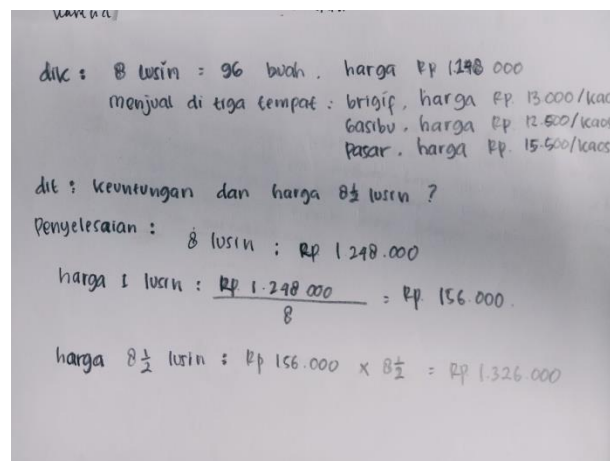 karena
dik : 8 lusin = 96 buah. harga Rp 1.248 000
menjual di tiga tempat : brigif, harga Rp. 13.000/kaos
Gasibu, harga Rp 12.500/kaos
Pasar. harga Rp. 15.500/kaos
dit : keuntungan dan harga 8½ lusin ?
Penyelesaian :
8 lusin : Rp 1.248.000
harga 1 lusin : Rp. 1.248 000 / 8 = Rp. 156.000.
harga 8½ lusin : Rp 156.000 × 8½ = Rp 1.326.000